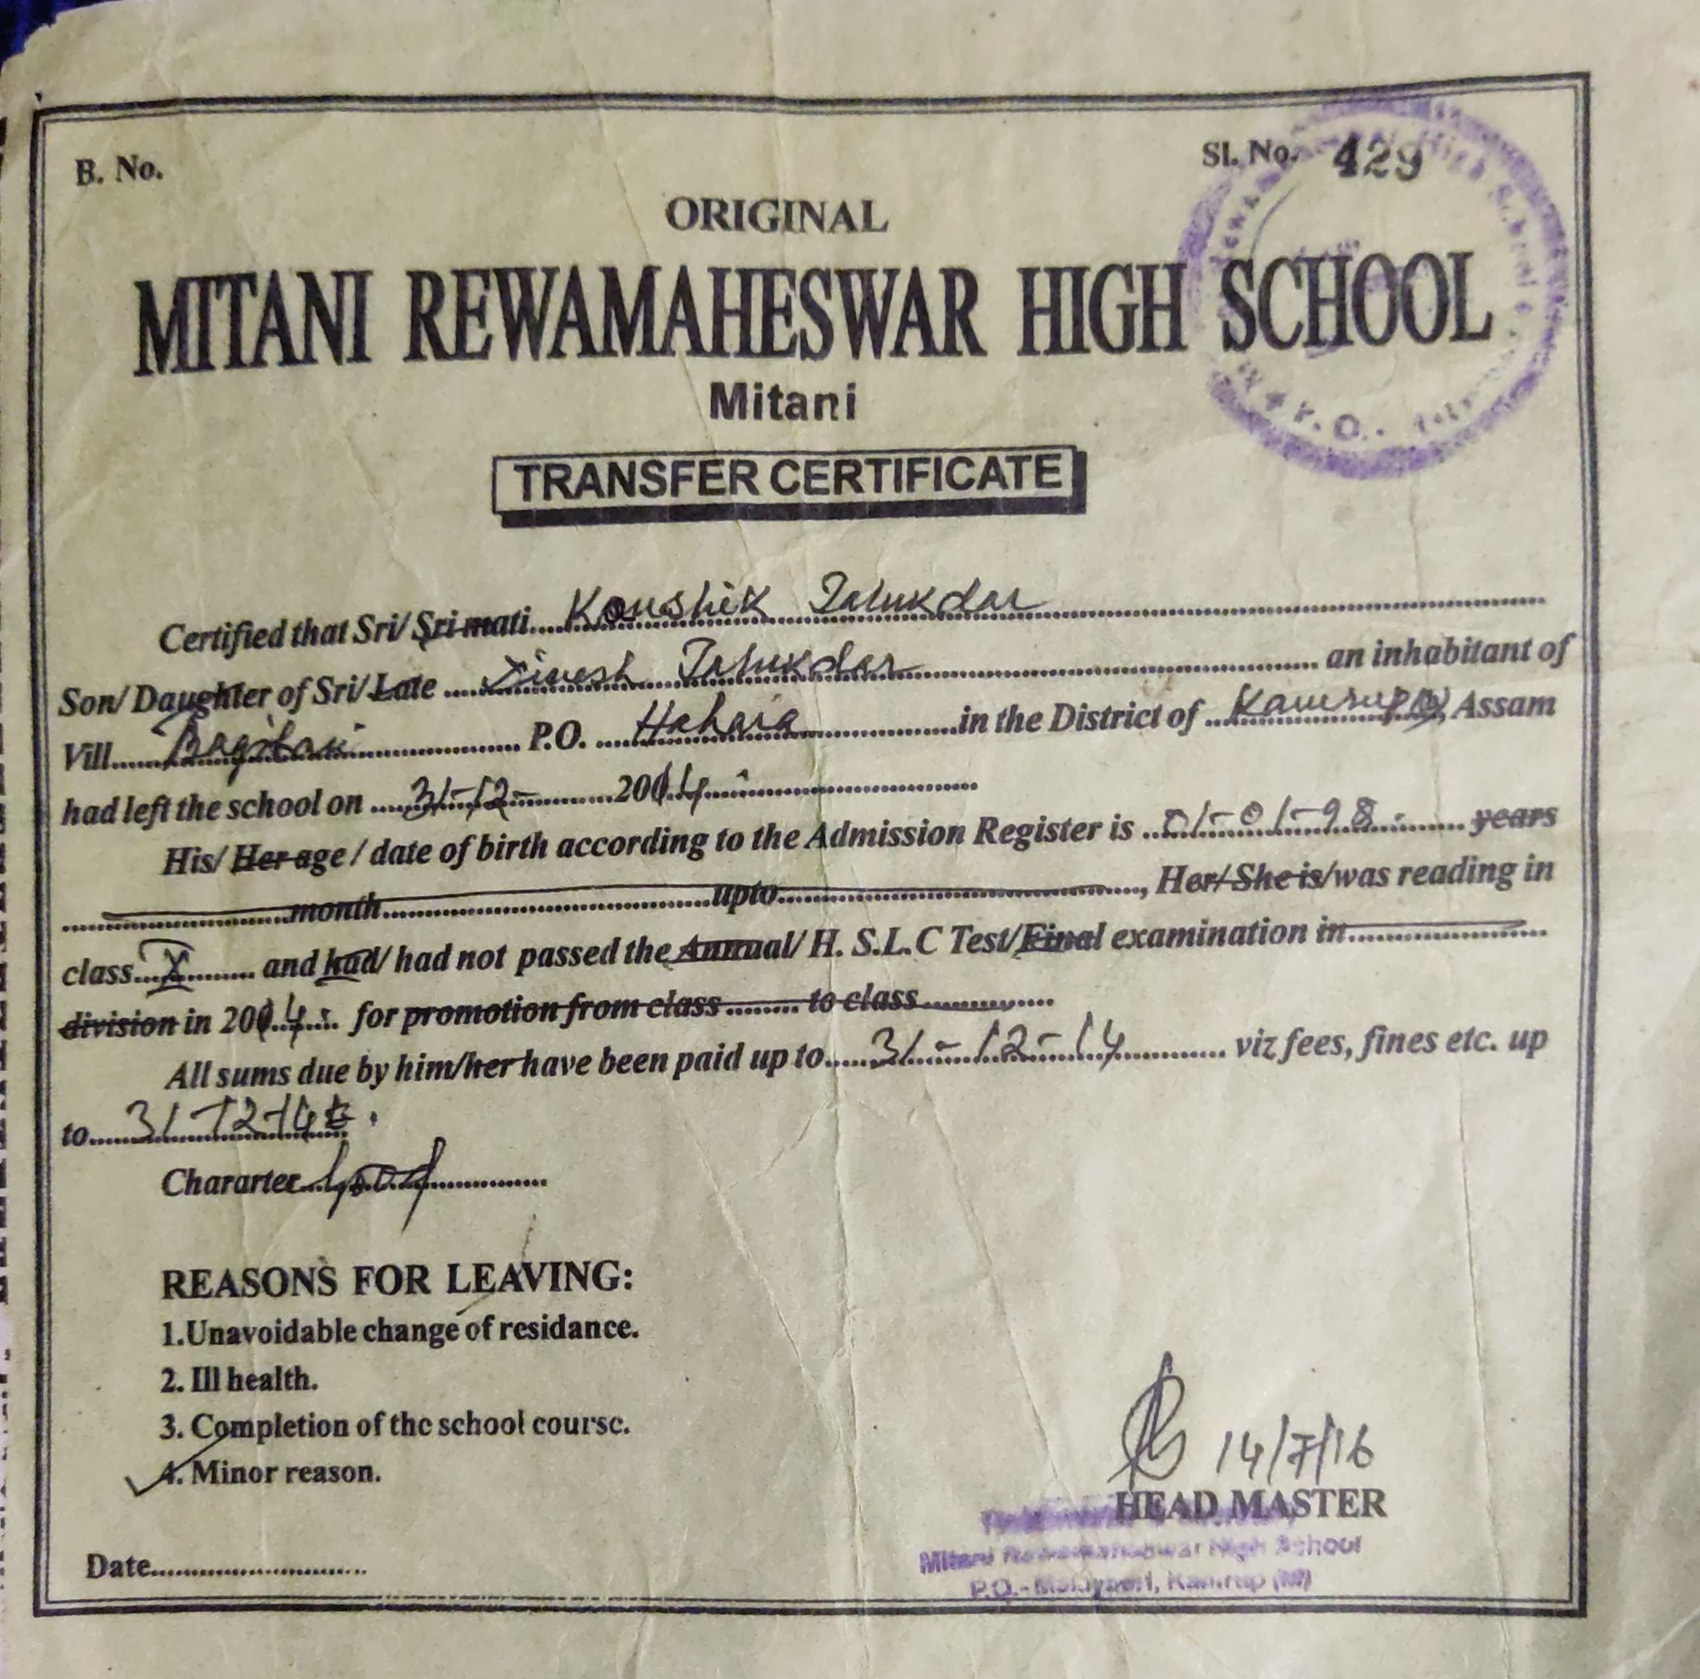 B. No.
Sl. No. 429
ORIGINAL
MITANI REWAMAHESWAR HIGH SCHOOL
Mitani
TRANSFER CERTIFICATE
Certified that Sri/ Srimati....Koushik Talukdar
Son/ Daughter of Sri/Late .... Dinesh Talukdar .... an inhabitant of
Vill.... .... P.O. .... Hahara ....in the District of ..Kamrup(M), Assam
had left the school on ....31-12-....2014....
His/ Her age / date of birth according to the Admission Register is ..01-01-98..... years
....month....upto...., Her/ She is/was reading in
class..X.... and had/ had not passed the Annual/ H. S.L.C Test/Final examination in....
division in 2014.... for promotion from class ........ to class....
All sums due by him/her have been paid up to....31-12-14.... viz fees, fines etc. up
to....31-12-14
Chararter....Good....
REASONS FOR LEAVING:
1.Unavoidable change of residance.
2. Ill health.
3. Completion of the school course.
4. Minor reason.
14/7/16
HEAD MASTER
Mitani Rewamaheswar High School
P.O.- Kamrup (M)
Date....